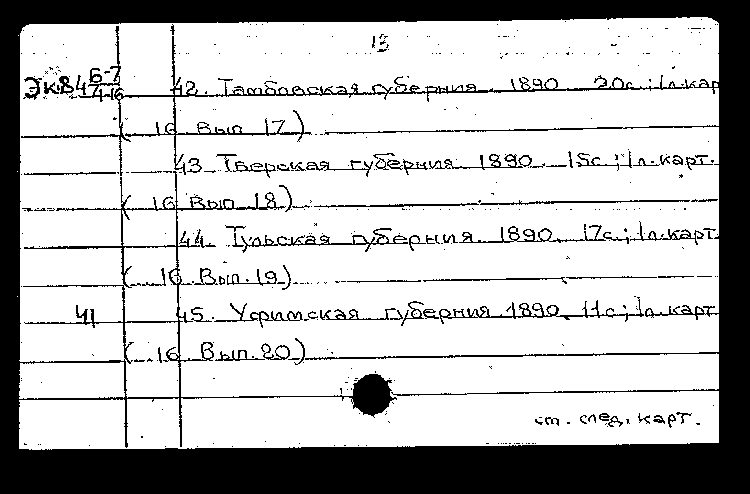 13
Эк.84 6-7/4-16 42. Тамбовская губерния 1890 20с.; 1л.кар
( 16 Вып 17)
43 Тверская губерния 1890. 15с; 1л. карт.
( 16 Вып. 18)
44. Тульская губерния. 1890. 17с; 1л.карт.
( 16 Вып. 19)
41 45. Уфимская губерния 1890. 11с; 1л. карт
( 16 Вып. 20)
см. след. карт.